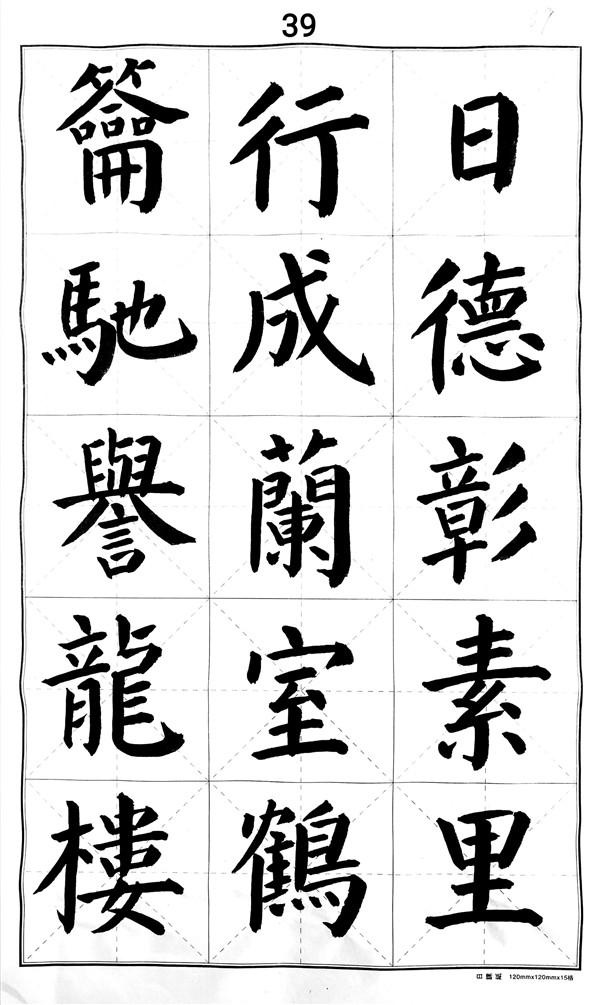 39
日德彰素里
行成蘭室鶴
籥馳譽龍樓
120mmx120mmx15格